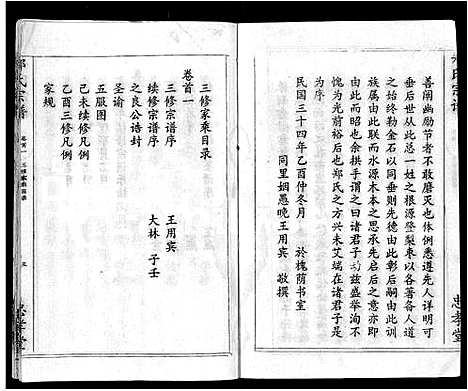 氏宗譜
善閫幽勵节者不敢磨灭也体例悉遵先人详明可
垂后世从此总一姓之根源登梨枣以各著各人道
之始终勒金石以同垂则先德由此而彰后嗣由此训
族属由此联而水源木本之思承先启后之意亦即
由此而昭也余拱手谓之曰诸君子功兹盛举洵不
愧为光前裕后也郑氏之方兴未艾端在诸君子是
为序
民国三十四年乙酉仲冬月 於槐荫书室
同里姻愚晚王用宾 敬撰
忠孝堂
卷首一
三修家乘目录
三修宗谱序 王用宾
续修宗谱序 大林 子壬
之良公诰封
圣谕
五服图
己未续修凡例
乙酉三修凡例
家规
氏宗譜
卷首一 三修家乘目录
忠孝堂